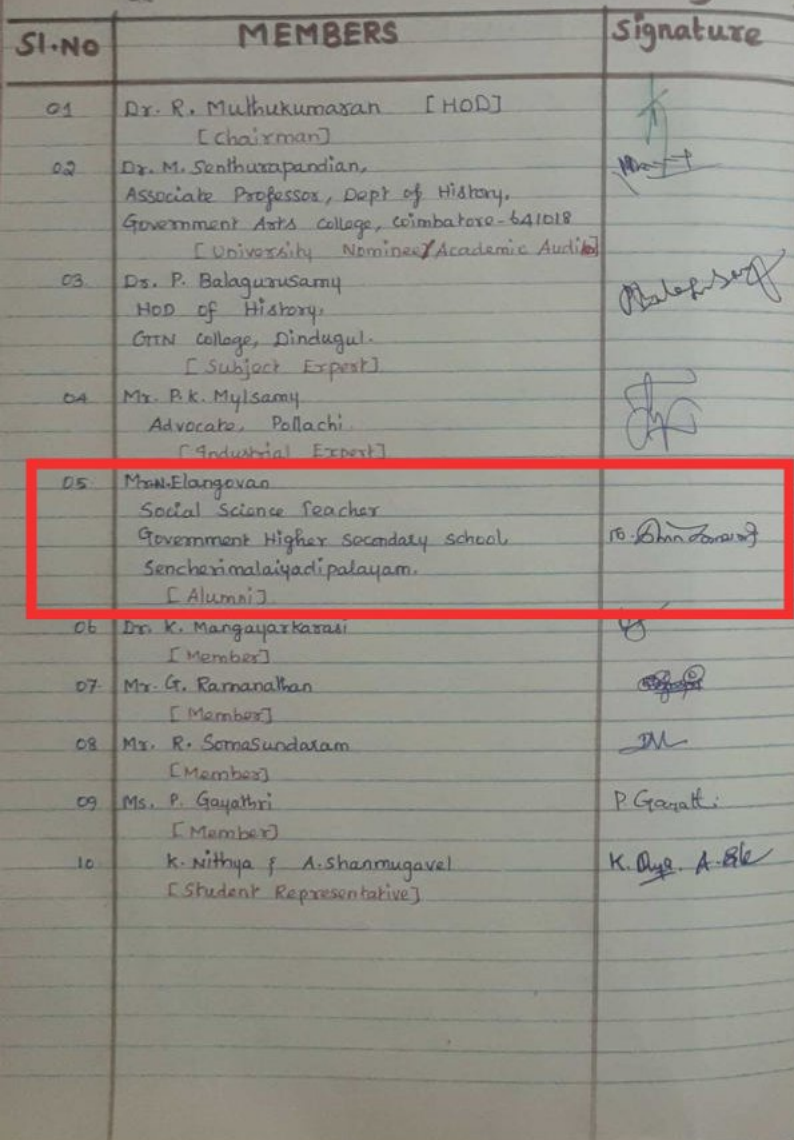 Sl.No MEMBERS Signature
01 Dr. R. Muthukumaran [HOD]
[Chairman]
02 Dr. M. Senthurapandian,
Associate Professor, Dept of History,
Government Arts College, Coimbatore-641018
[University Nominee/Academic Audit]
03 Dr. P. Balagurusamy
HOD of History,
GTN College, Dindugul.
[Subject Expert]
04 Mr. P.K. Mylsamy
Advocate, Pollachi
[Industrial Expert]
05 Mr.N.Elangovan
Social Science Teacher
Government Higher Secondary School
Sencherimalaiyadipalayam.
[Alumni]
06 Dr. K. Mangayarkarasi
[Member]
07 Mr. G. Ramanathan
[Member]
08 Mr. R. Somasundaram
[Member]
09 Ms. P. Gayathri P. Gayatti
[Member]
10 K. Nithya & A. Shanmugavel K. A.
[Student Representative]